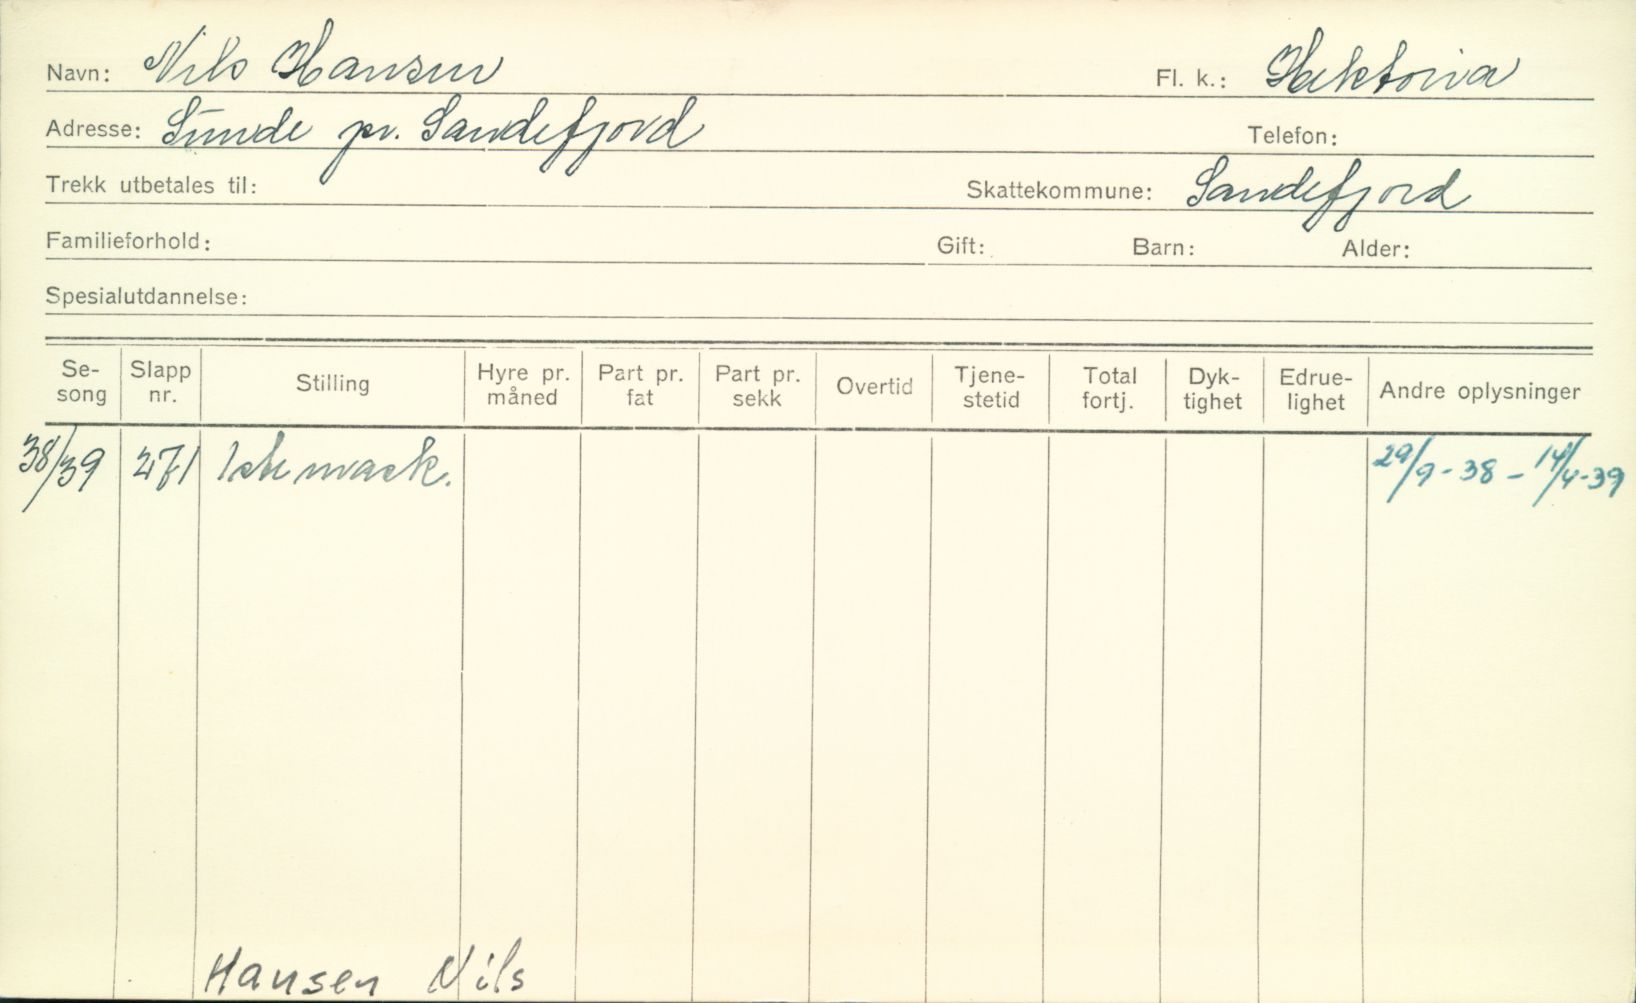 Navn: Nils Hansen Fl. k.: Hektoria
Adresse: Sunde pr. Sandefjord Telefon:
Trekk utbetales til: Skattekommune: Sandefjord
Familieforhold: Gift: Barn: Alder:
Spesialutdannelse:
Se-song Slapp nr. Stilling Hyre pr. måned Part pr. fat Part pr. sekk Overtid Tjene-stetid Total fortj. Dyk-tighet Edrue-lighet Andre oplysninger
38/39 471 1ste mask. 29/9-38 - 14/4-39
Hansen Nils